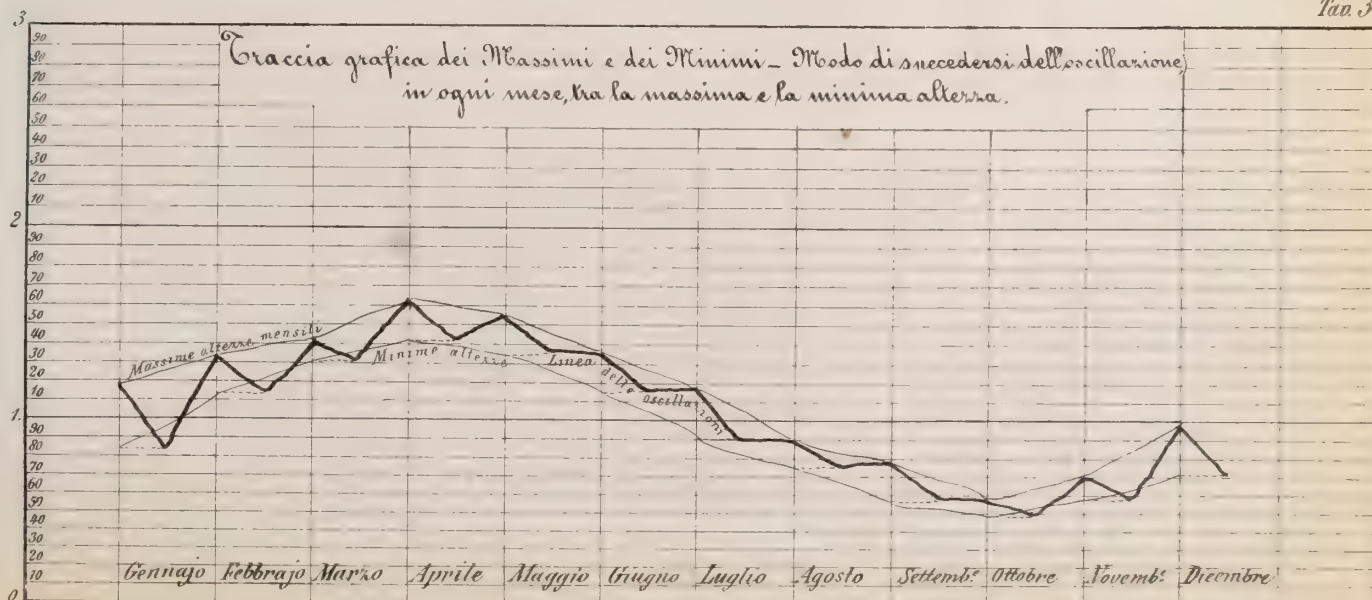 Tav. 3
Traccia grafica dei Massimi e dei Minimi _ Modo di succedersi dell'oscillazione,
in ogni mese, tra la massima e la minima altezza.
3
90
80
70
60
50
40
30
20
10
2
90
80
70
60
50
40
30
20
10
1.
90
80
70
60
50
40
30
20
10
0
Massime altezze mensili
Minime altezze
Linea delle oscillazioni
Gennajo Febbrajo Marzo Aprile Maggio Giugno Luglio Agosto Settembᵉ Ottobre Novembᵉ Dicembre